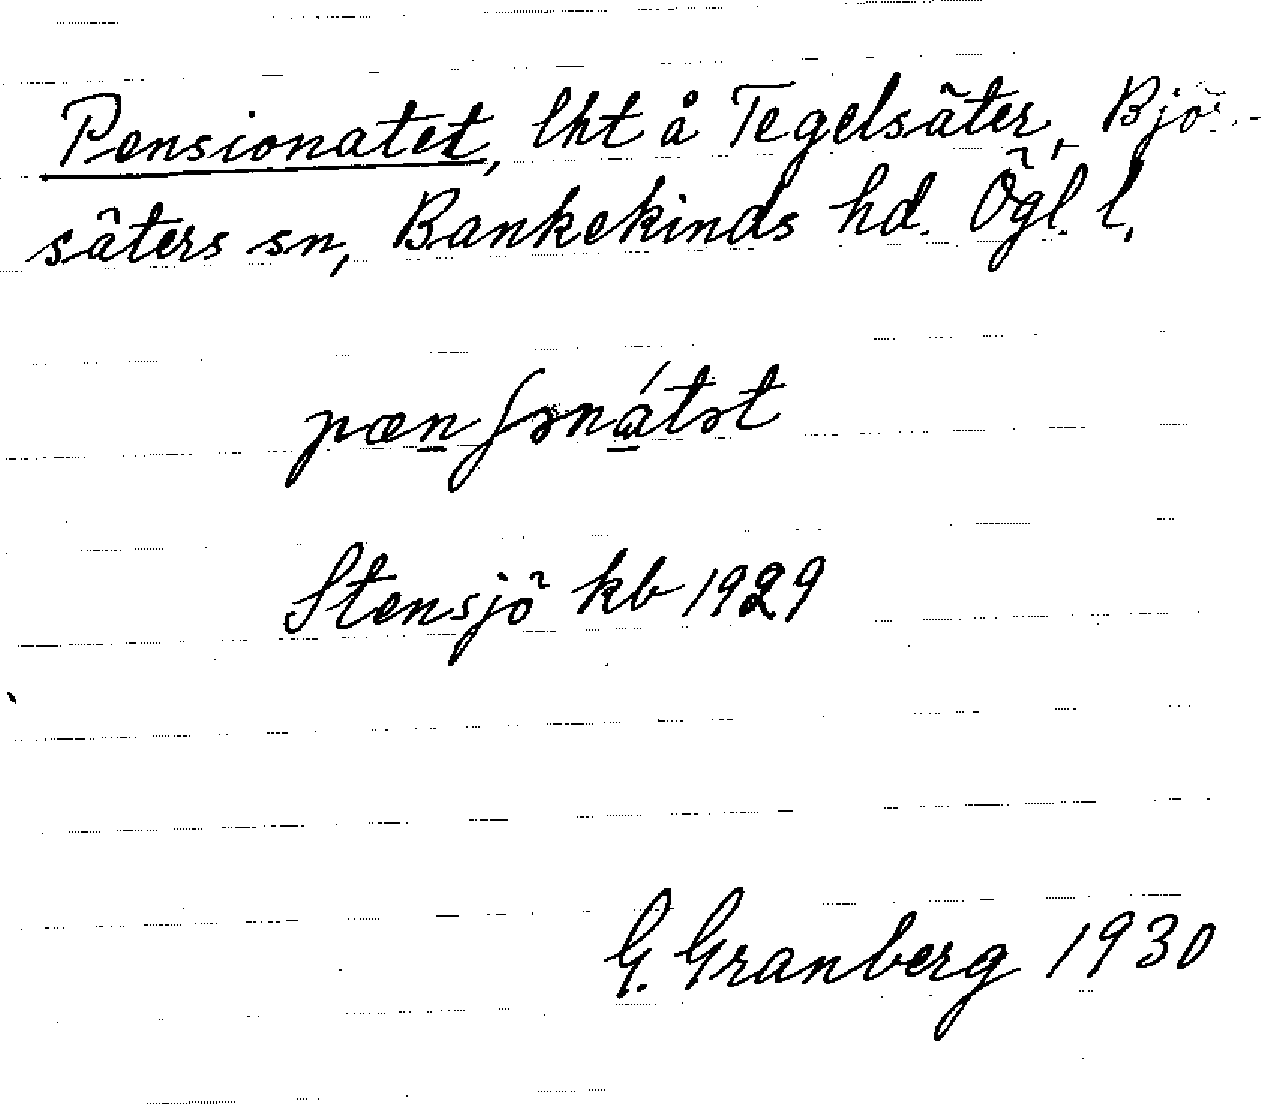 Pensionatet, lht å Tegelsäter, Bjö-
säters sn, Bankekinds hd. Ögl. l.
pænʃənátət
Stensjö kb 1929
G. Granberg 1930